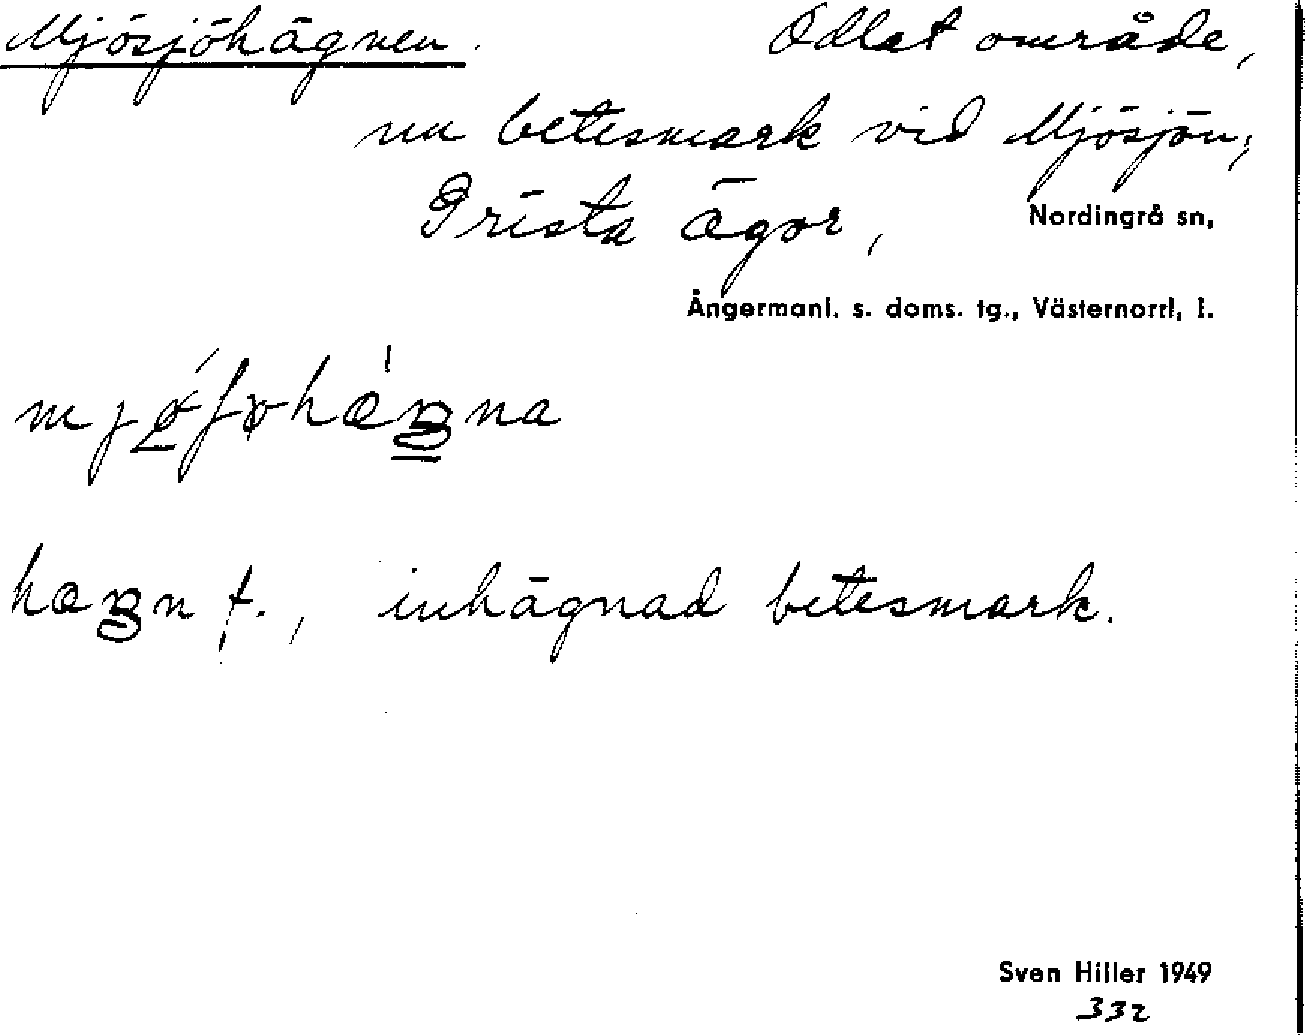 Mjösjöhägnen. Odlat område,
nu betesmark vid Mjösjön,
Prästa ägor, Nordingrå sn,
Ångermanl. s. doms. tg., Västernorrl. l.
inhägnad betesmark.
Sven Hiller 1949
332